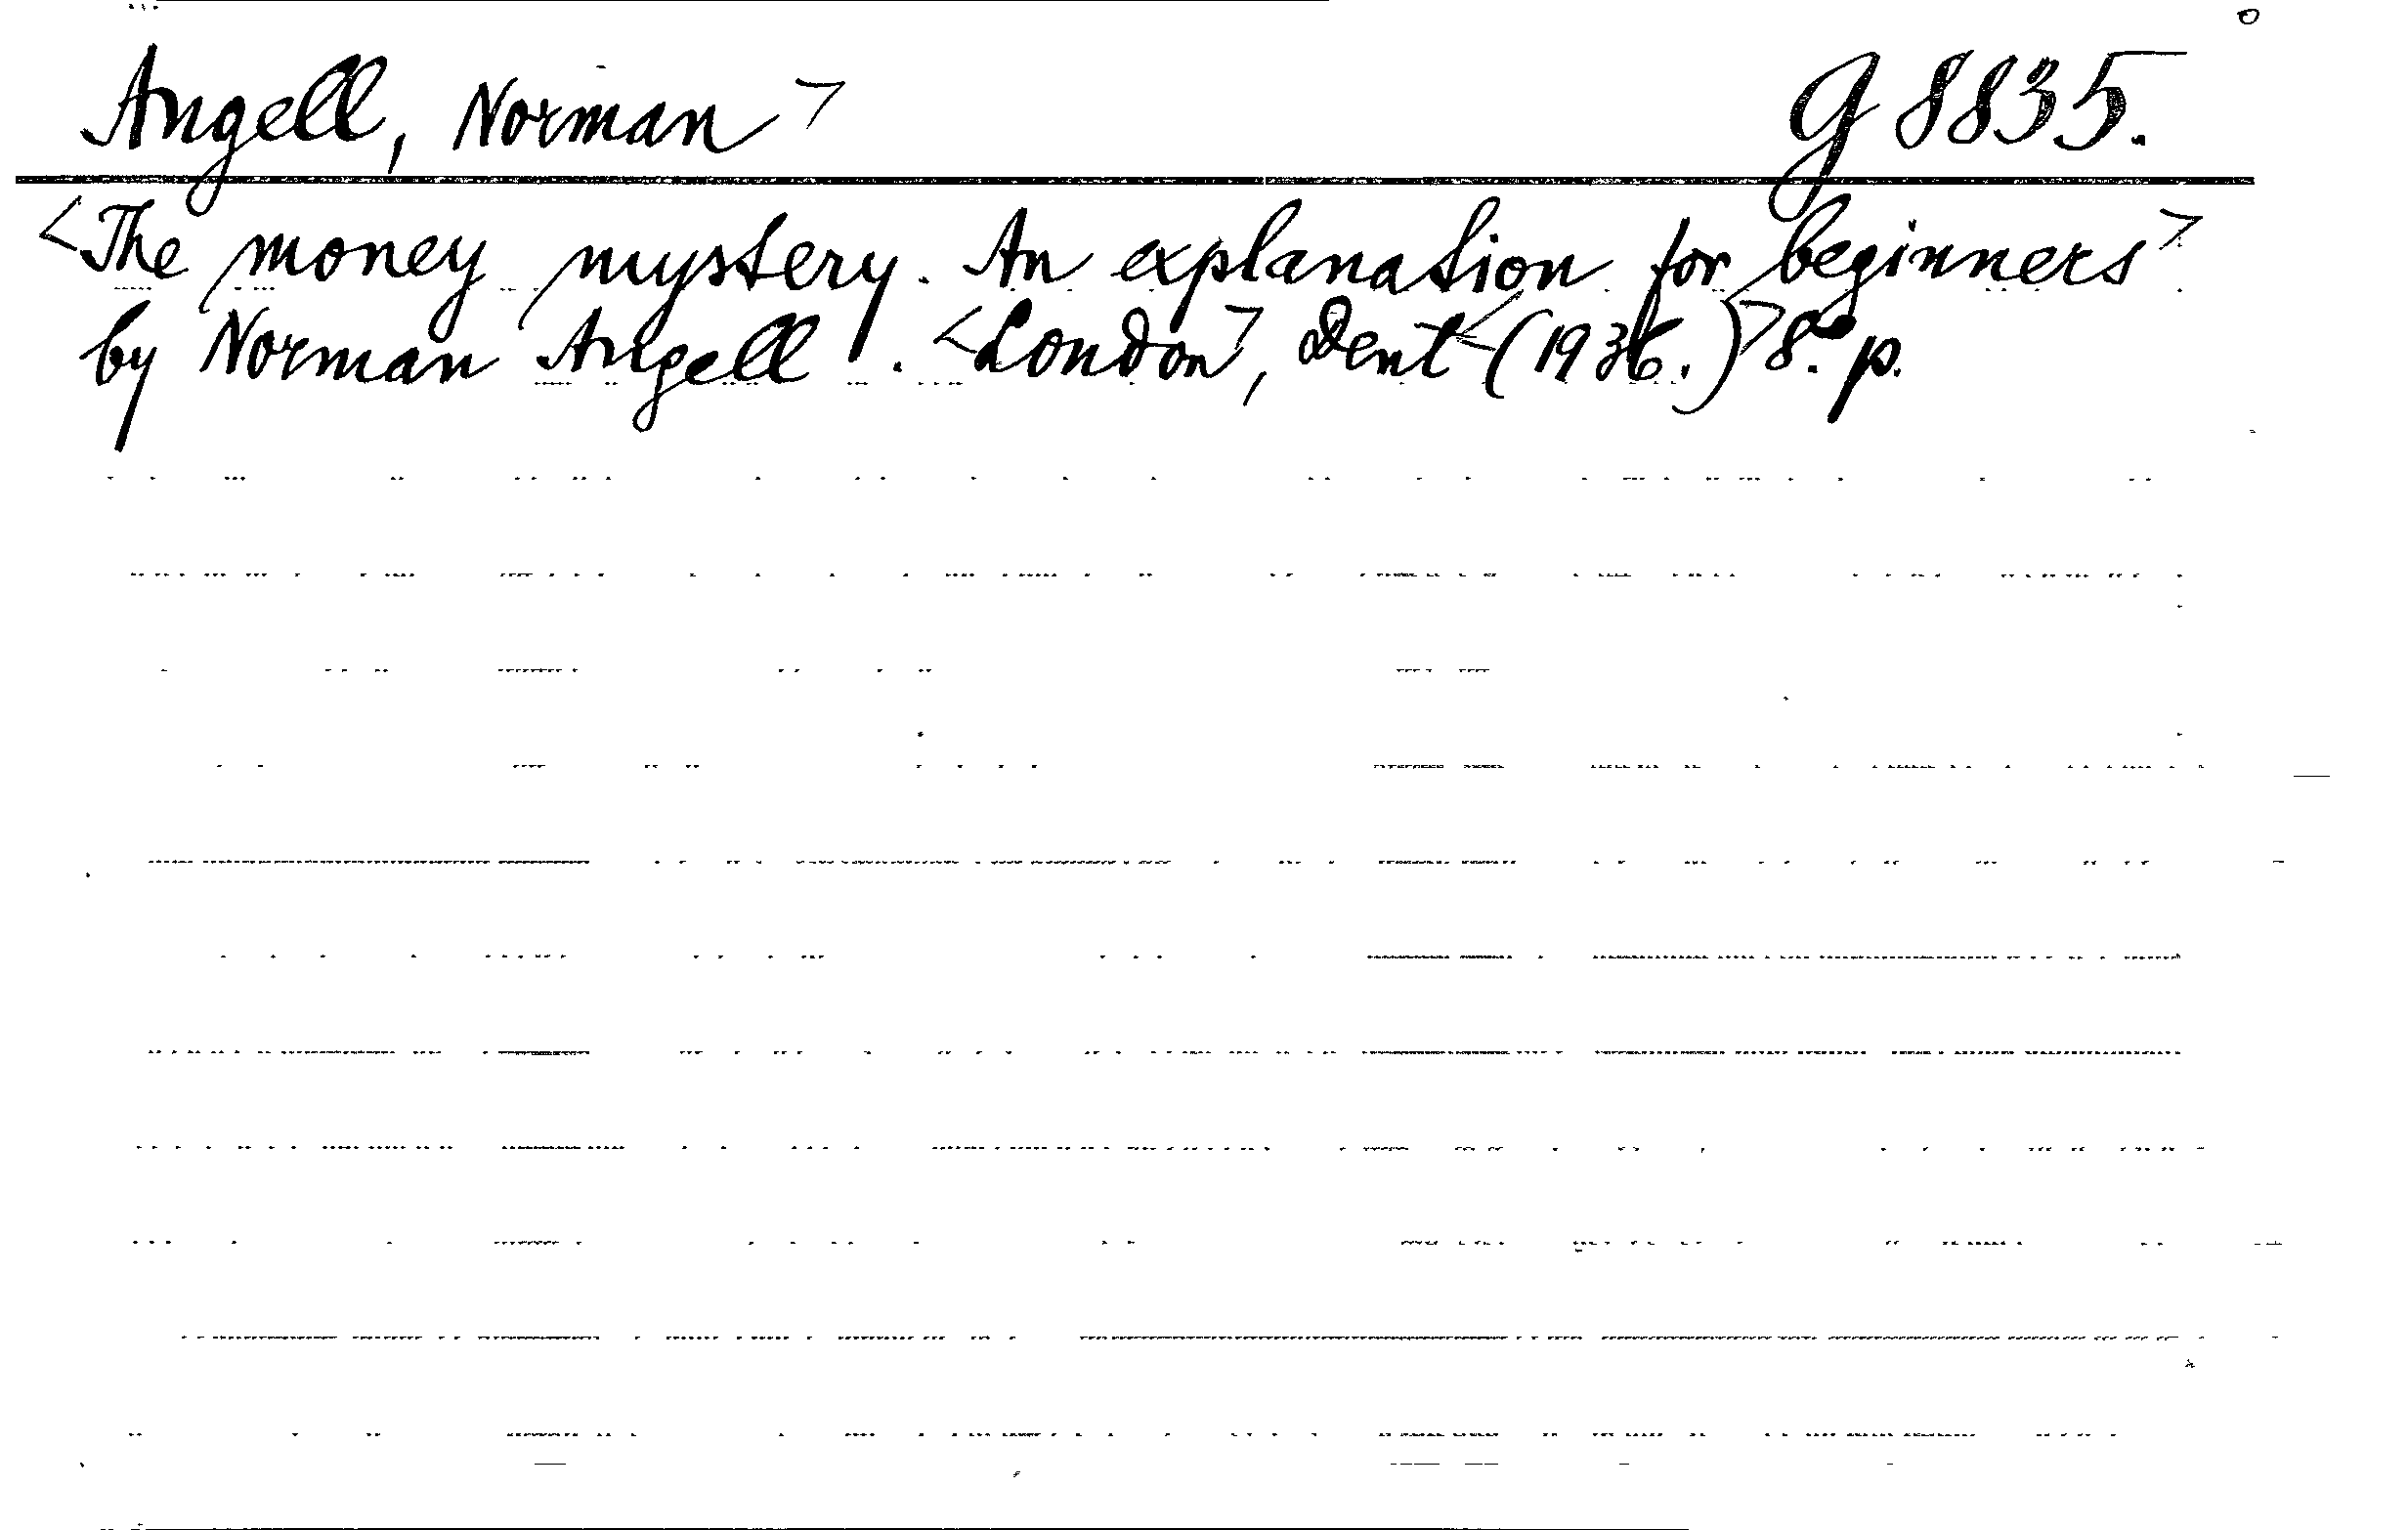 Angell, Norman> G 8835.
<The money mystery. An explanation for beginners>
by Norman Angell. <London>, Dent <(1936.)> 8° p.